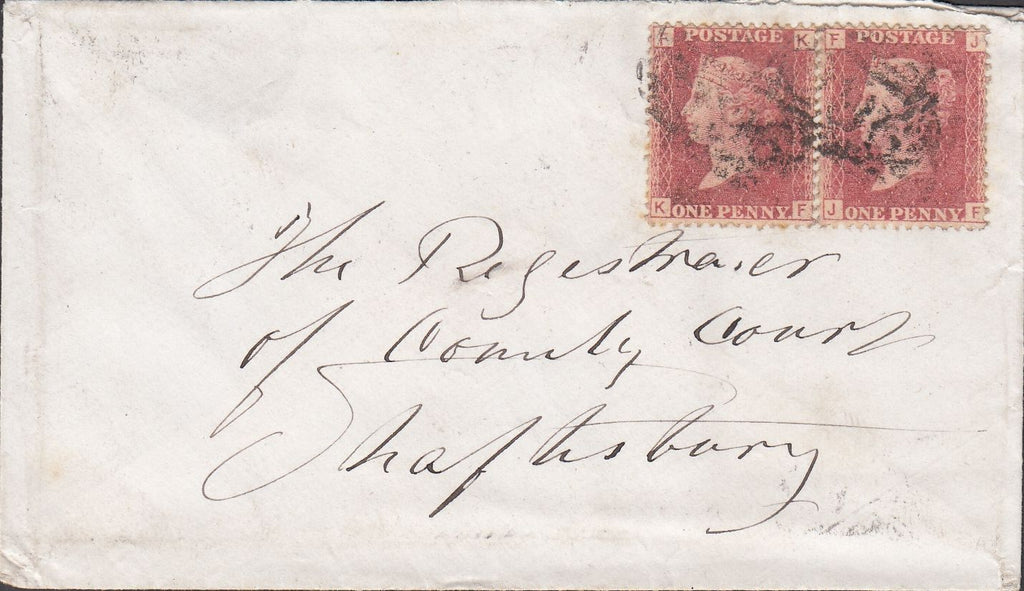 F K POSTAGE K F
K ONE PENNY F
F POSTAGE J
J ONE PENNY F
The Regestraer
of County Court
Shaftsbury